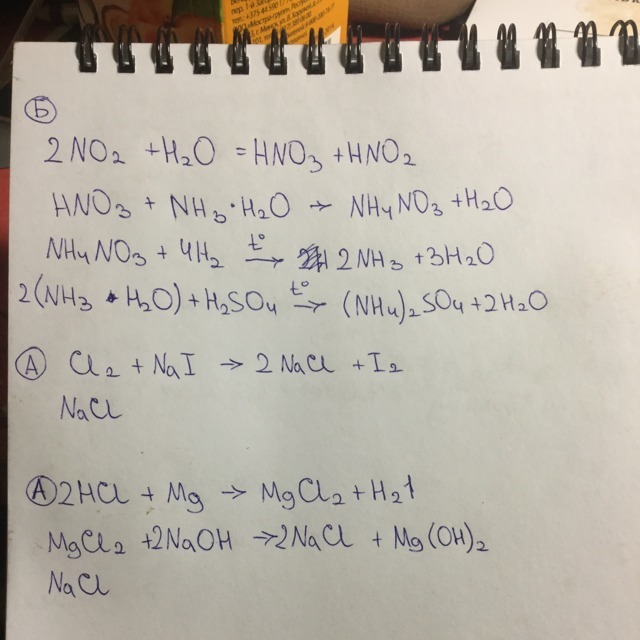 Б
2NO₂ + H₂O = HNO₃ + HNO₂
HNO₃ + NH₃·H₂O → NH₄NO₃ + H₂O
NH₄NO₃ + 4H₂ t° → 2NH₃ + 3H₂O
2(NH₃ · H₂O) + H₂SO₄ t° → (NH₄)₂SO₄ + 2H₂O
А Cl₂ + NaI → 2NaCl + I₂
NaCl
А 2HCl + Mg → MgCl₂ + H₂↑
MgCl₂ + 2NaOH → 2NaCl + Mg(OH)₂
NaCl